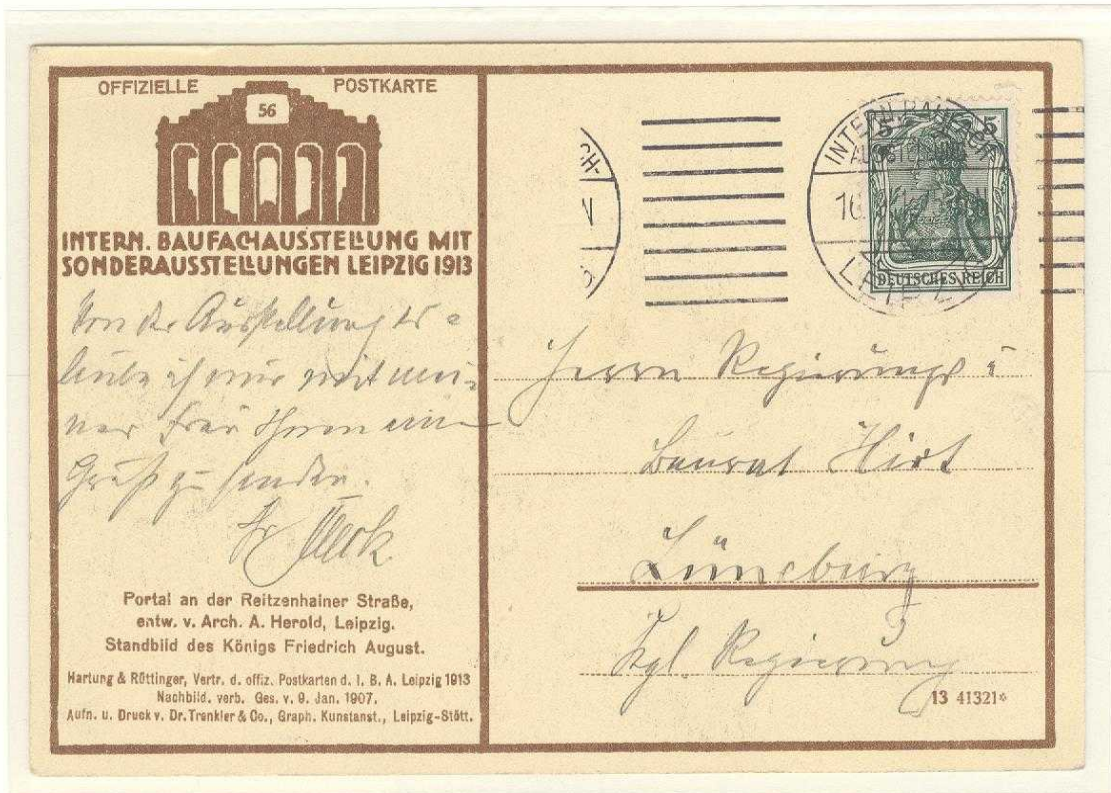 OFFIZIELLE POSTKARTE
56
INTERN. BAUFACHAUSSTELLUNG MIT
SONDERAUSSTELLUNGEN LEIPZIG 1913
Von der Ausstellung er=
laube ich mir mit mei=
ner Frau Ihnen einen
Gruß zu senden.
Portal an der Reitzenhainer Straße,
entw. v. Arch. A. Herold, Leipzig.
Standbild des Königs Friedrich August.
Hartung & Röttinger, Vertr. d. offiz. Postkarten d. I. B. A. Leipzig 1913
Nachbild. verb. Ges. v. 9. Jan. 1907.
Aufn. u. Druck v. Dr. Trenkler & Co., Graph. Kunstanst., Leipzig-Stött.
CH-
N
INTERN. BAUFACH-
AUSSTELLUNG
16.
LEIPZIG
5 5
DEUTSCHES REICH
Herrn Regierungs u
Baurat Hirt
Lüneburg
Kgl. Regierung
13 41321*